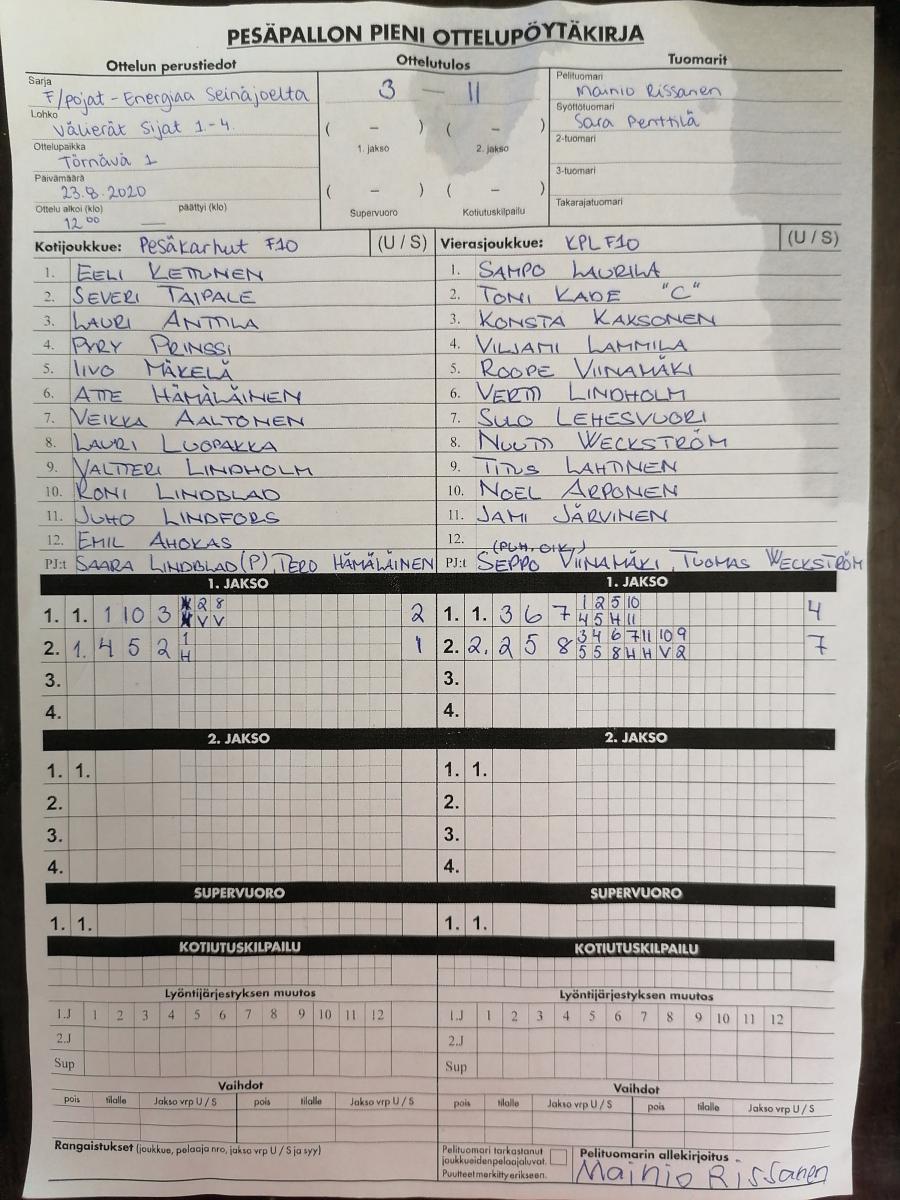 PESÄPALLON PIENI OTTELUPÖYTÄKIRJA
Ottelun perustiedot
Ottelutulos
Tuomarit
Sarja
F/pojat - Energiaa Seinäjoelta
Lohko
Välierät Sijat 1.-4.
Ottelupaikka
Törnävä 1
Päivämäärä
23.8.2020
Ottelu alkoi (klo) päättyi (klo)
12 00 —
3 — 11
( – ) ( – )
1. jakso 2. jakso
( – ) ( – )
Supervuoro Kotiutuskilpailu
Pelituomari
Mainio Rissanen
Syöttötuomari
Sara Penttilä
2-tuomari
3-tuomari
Takarajatuomari
Kotijoukkue: Pesäkarhut F10 (U / S)
1. EELI KETTUNEN
2. SEVERI TAIPALE
3. LAURI ANTTILA
4. PYRY PRINSSI
5. IIVO MÄKELÄ
6. ATTE HÄMÄLÄINEN
7. VEIKKA AALTONEN
8. LAURI LUOPAKKA
9. VALTTERI LINDHOLM
10. RONI LINDBLAD
11. JUHO LINDFORS
12. EMIL AHOKAS
PJ:t SAARA LINDBLAD (P), TERO HÄMÄLÄINEN
Vierasjoukkue: KPL F10 (U / S)
1. SAMPO LAURILA
2. TONI KADE "C"
3. KONSTA KAKSONEN
4. VILJAMI LAMMILA
5. ROOPE VIINAMÄKI
6. VERTTI LINDHOLM
7. SULO LEHESVUORI
8. NUUTTI WECKSTRÖM
9. TITUS LAHTINEN
10. NOEL ARPONEN
11. JAMI JÄRVINEN
12.
(PUH. OIK.)
PJ:t SEPPO VIINAMÄKI, TUOMAS WECKSTRÖM
1. JAKSO
1. 1. 1 10 3 2 8 2
V V
2. 1. 4 5 2 1 1
H
3.
4.
1. JAKSO
1. 1. 3 6 7 1 2 5 10 4
4 5 H 11
2. 2. 2 5 8 3 4 6 7 11 10 9 7
5 5 8 H H V 2
3.
4.
2. JAKSO
1. 1.
2.
3.
4.
2. JAKSO
1. 1.
2.
3.
4.
SUPERVUORO
1. 1.
SUPERVUORO
1. 1.
KOTIUTUSKILPAILU
KOTIUTUSKILPAILU
Lyöntijärjestyksen muutos
1.J 1 2 3 4 5 6 7 8 9 10 11 12
2.J
Sup
Lyöntijärjestyksen muutos
1.J 1 2 3 4 5 6 7 8 9 10 11 12
2.J
Sup
Vaihdot
pois tilalle Jakso vrp U / S pois tilalle Jakso vrp U / S
Vaihdot
pois tilalle Jakso vrp U / S pois tilalle Jakso vrp U / S
Rangaistukset (joukkue, pelaaja nro, jakso vrp U / S ja syy)
Pelituomari tarkastanut
joukkueidenpelaajaluvat.
Puutteet merkitty erikseen.
Pelituomarin allekirjoitus
Mainio Rissanen